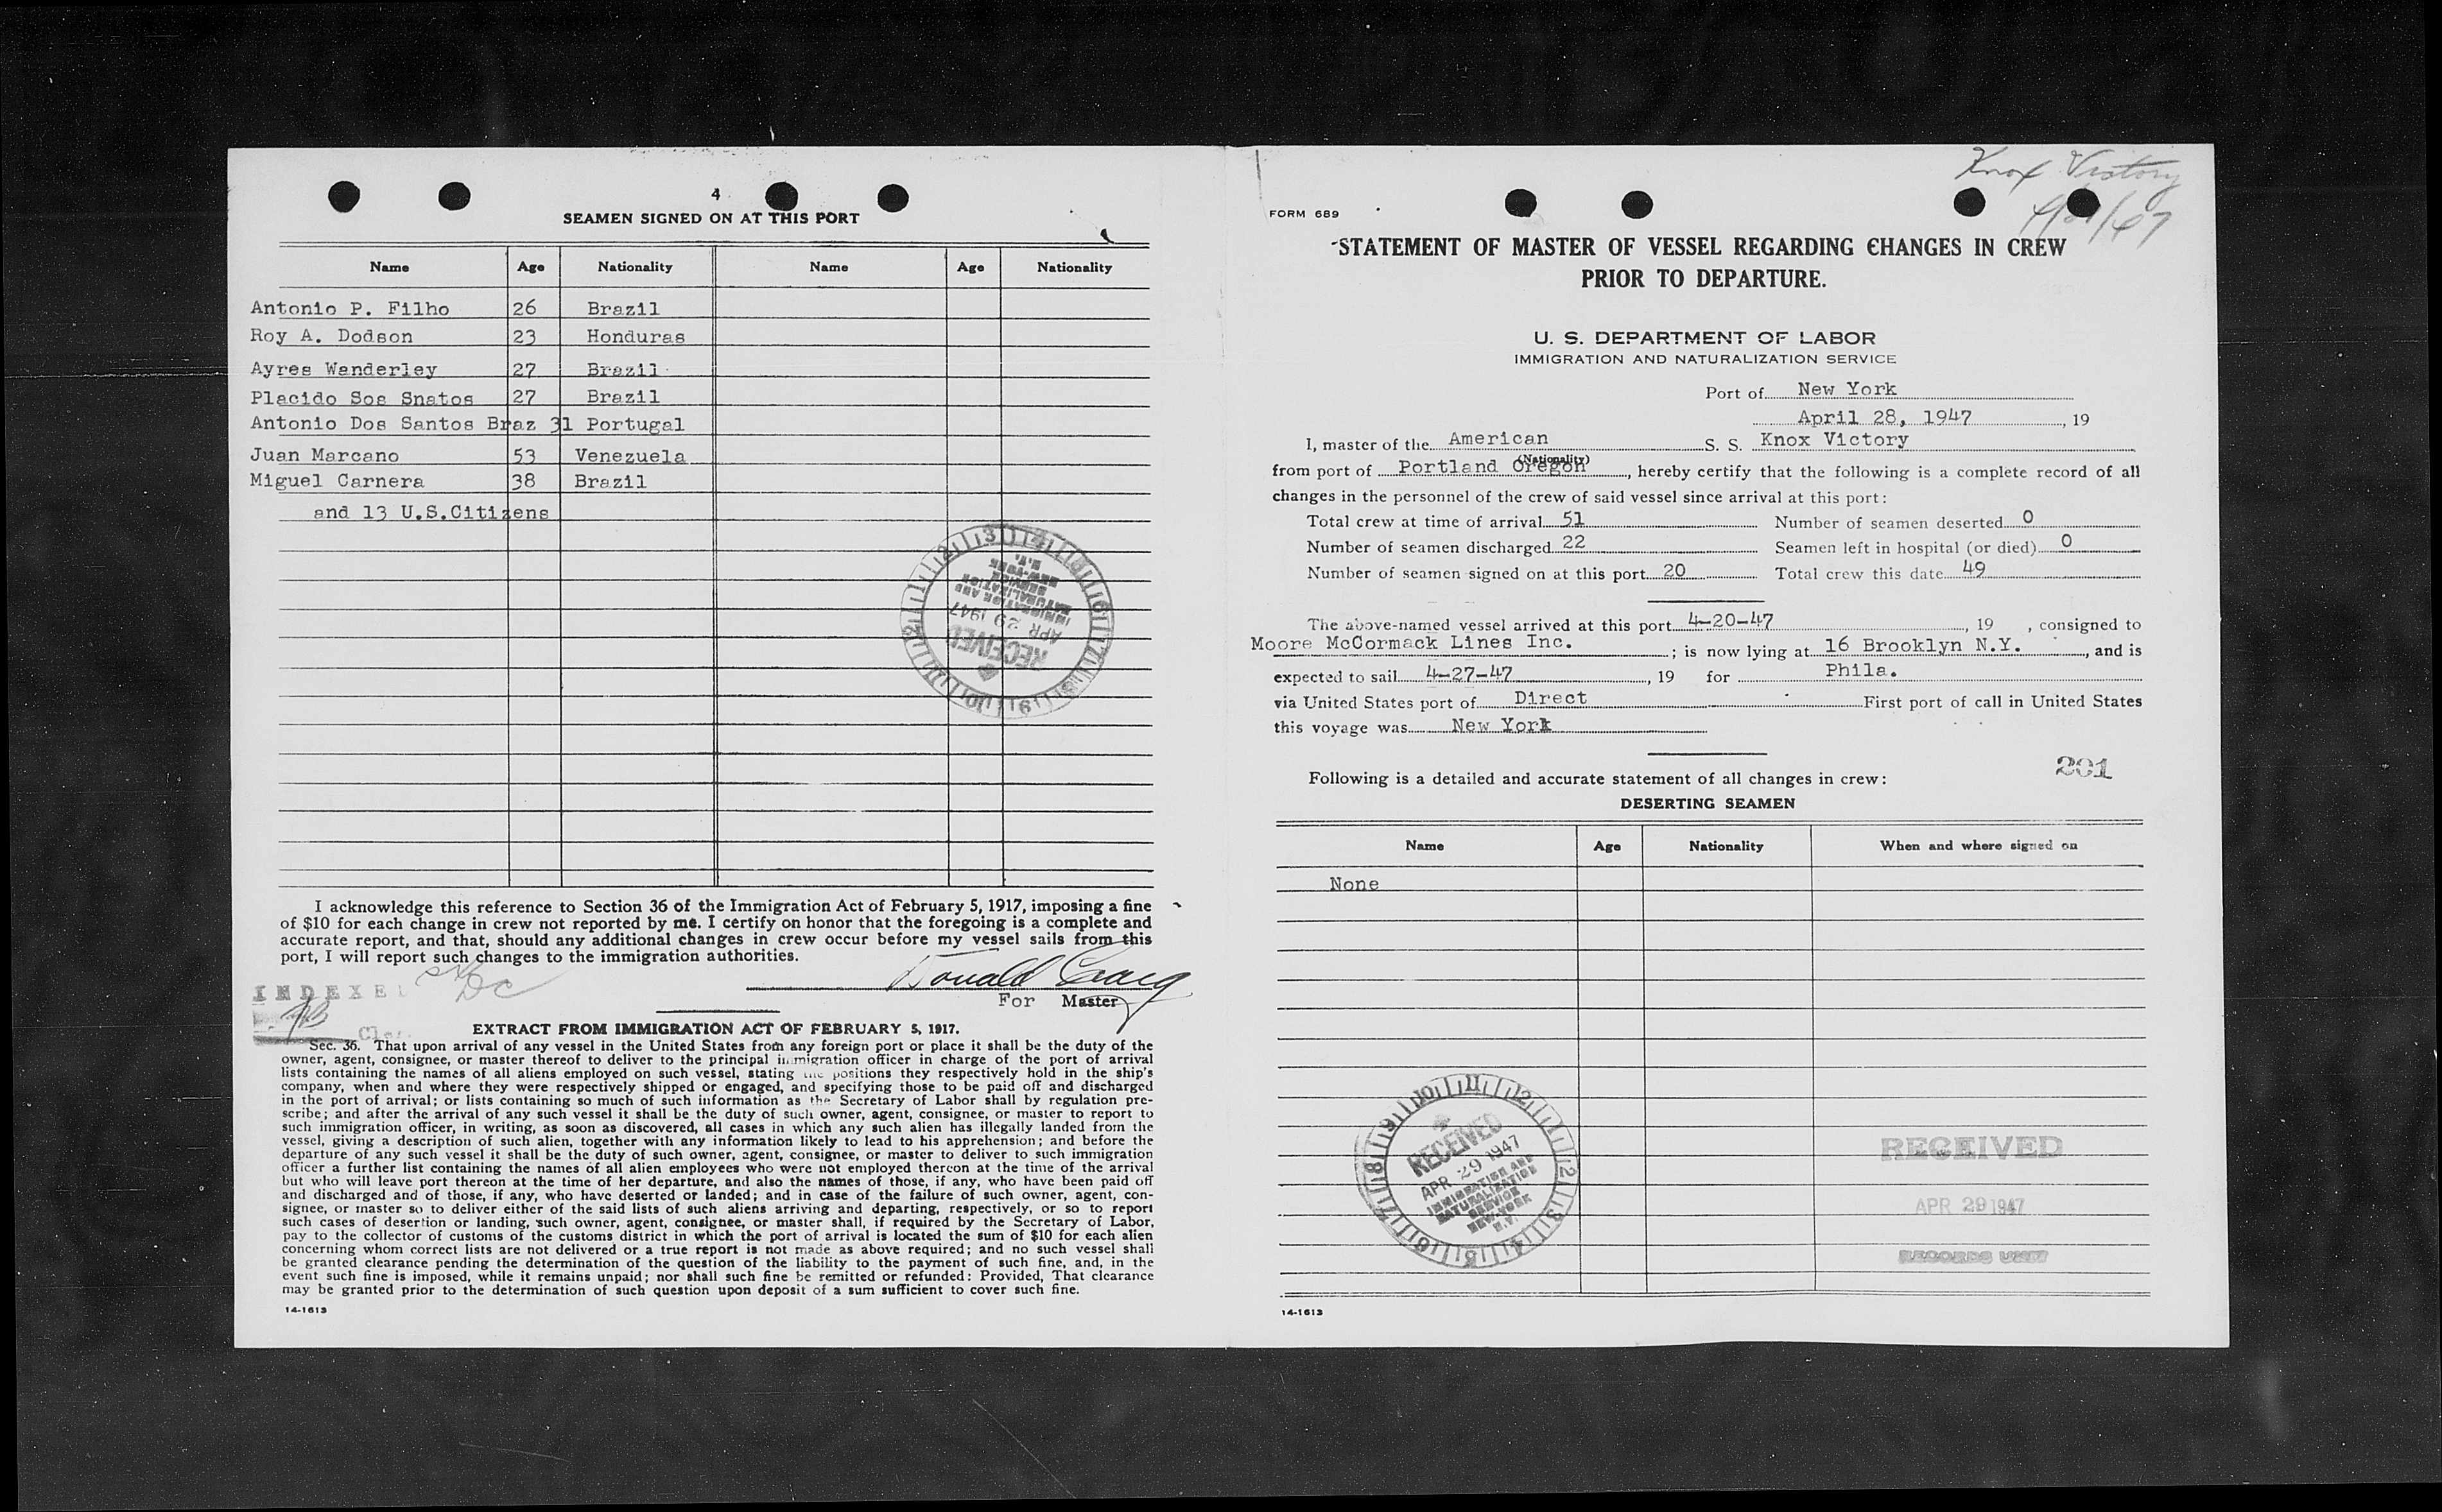 4
SEAMEN SIGNED ON AT THIS PORT
Name Age Nationality Name Age Nationality
Antonio P. Filho 26 Brazil
Roy A. Dodson 23 Honduras
Ayres Wanderley 27 Brazil
Placido Sos Snatos 27 Brazil
Antonio Dos Santos Braz 31 Portugal
Juan Marcano 53 Venezuela
Miguel Carnera 38 Brazil
and 13 U.S.Citizens
RECEIVED
APR 29 1947
IMMIGRATION AND
NATURALIZATION
SERVICE
NEW-YORK
N.Y.
I acknowledge this reference to Section 36 of the Immigration Act of February 5, 1917, imposing a fine
of $10 for each change in crew not reported by me. I certify on honor that the foregoing is a complete and
accurate report, and that, should any additional changes in crew occur before my vessel sails from this
port, I will report such changes to the immigration authorities.
Donald Craig
For Master
INDEXE
EXTRACT FROM IMMIGRATION ACT OF FEBRUARY 5, 1917.
Sec. 36. That upon arrival of any vessel in the United States from any foreign port or place it shall be the duty of the
owner, agent, consignee, or master thereof to deliver to the principal immigration officer in charge of the port of arrival
lists containing the names of all aliens employed on such vessel, stating the positions they respectively hold in the ship's
company, when and where they were respectively shipped or engaged, and specifying those to be paid off and discharged
in the port of arrival; or lists containing so much of such information as the Secretary of Labor shall by regulation pre-
scribe; and after the arrival of any such vessel it shall be the duty of such owner, agent, consignee, or master to report to
such immigration officer, in writing, as soon as discovered, all cases in which any such alien has illegally landed from the
vessel, giving a description of such alien, together with any information likely to lead to his apprehension; and before the
departure of any such vessel it shall be the duty of such owner, agent, consignee, or master to deliver to such immigration
officer a further list containing the names of all alien employees who were not employed thereon at the time of the arrival
but who will leave port thereon at the time of her departure, and also the names of those, if any, who have been paid off
and discharged and of those, if any, who have deserted or landed; and in case of the failure of such owner, agent, con-
signee, or master so to deliver either of the said lists of such aliens arriving and departing, respectively, or so to report
such cases of desertion or landing, such owner, agent, consignee, or master shall, if required by the Secretary of Labor,
pay to the collector of customs of the customs district in which the port of arrival is located the sum of $10 for each alien
concerning whom correct lists are not delivered or a true report is not made as above required; and no such vessel shall
be granted clearance pending the determination of the question of the liability to the payment of such fine, and, in the
event such fine is imposed, while it remains unpaid; nor shall such fine be remitted or refunded: Provided, That clearance
may be granted prior to the determination of such question upon deposit of a sum sufficient to cover such fine.
14-1613
Knox Victory
FORM 689
STATEMENT OF MASTER OF VESSEL REGARDING CHANGES IN CREW
PRIOR TO DEPARTURE.
U. S. DEPARTMENT OF LABOR
IMMIGRATION AND NATURALIZATION SERVICE
Port of New York
April 28, 1947, 19
I, master of the American S. S. Knox Victory
(Nationality)
from port of Portland Oregon, hereby certify that the following is a complete record of all
changes in the personnel of the crew of said vessel since arrival at this port:
Total crew at time of arrival 51 Number of seamen deserted 0
Number of seamen discharged 22 Seamen left in hospital (or died) 0
Number of seamen signed on at this port 20 Total crew this date 49
The above-named vessel arrived at this port 4-20-47, 19 , consigned to
Moore McCormack Lines Inc.; is now lying at 16 Brooklyn N.Y., and is
expected to sail 4-27-47, 19 for Phila.
via United States port of Direct First port of call in United States
this voyage was New York
201
Following is a detailed and accurate statement of all changes in crew:
DESERTING SEAMEN
Name Age Nationality When and where signed on
None
RECEIVED
APR 29 1947
IMMIGRATION AND
NATURALIZATION
SERVICE
NEW-YORK
N.Y.
RECEIVED
APR 29 1947
RECORDS UNIT
14-1613